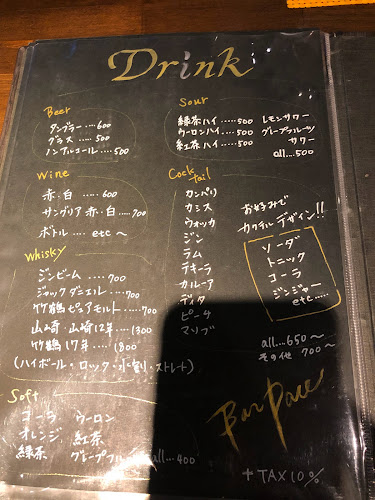 Drink
Beer
タンブラー....600
グラス.....500
ノンアルコール....500
Wine
赤・白 ......600
サングリア 赤・白.....700
ボトル.... etc〜
Whisky
ジンビーム.....700
ジャックダニエル....700
竹鶴ピュアモルト....700
山崎・山崎12年...1300
竹鶴17年....1800
(ハイボール・ロック・水割・ストレート)
Soft
コーラ ウーロン
オレンジ 紅茶
緑茶 グレープフルーツ all...400
Sour
緑茶ハイ.....500 レモンサワー
ウーロンハイ....500 グレープフルーツ
紅茶ハイ....500 サワー
all....500
Cock
tail
カンパリ
カシス
ウォッカ
ジン
ラム
テキーラ
カルーア
ディタ
ピーチ
マリブ
お好みで
カクテルデザイン!!
ソーダ
トニック
コーラ
ジンジャー
etc.....
all...650〜
その他 700〜
Bar Pace
+TAX10%